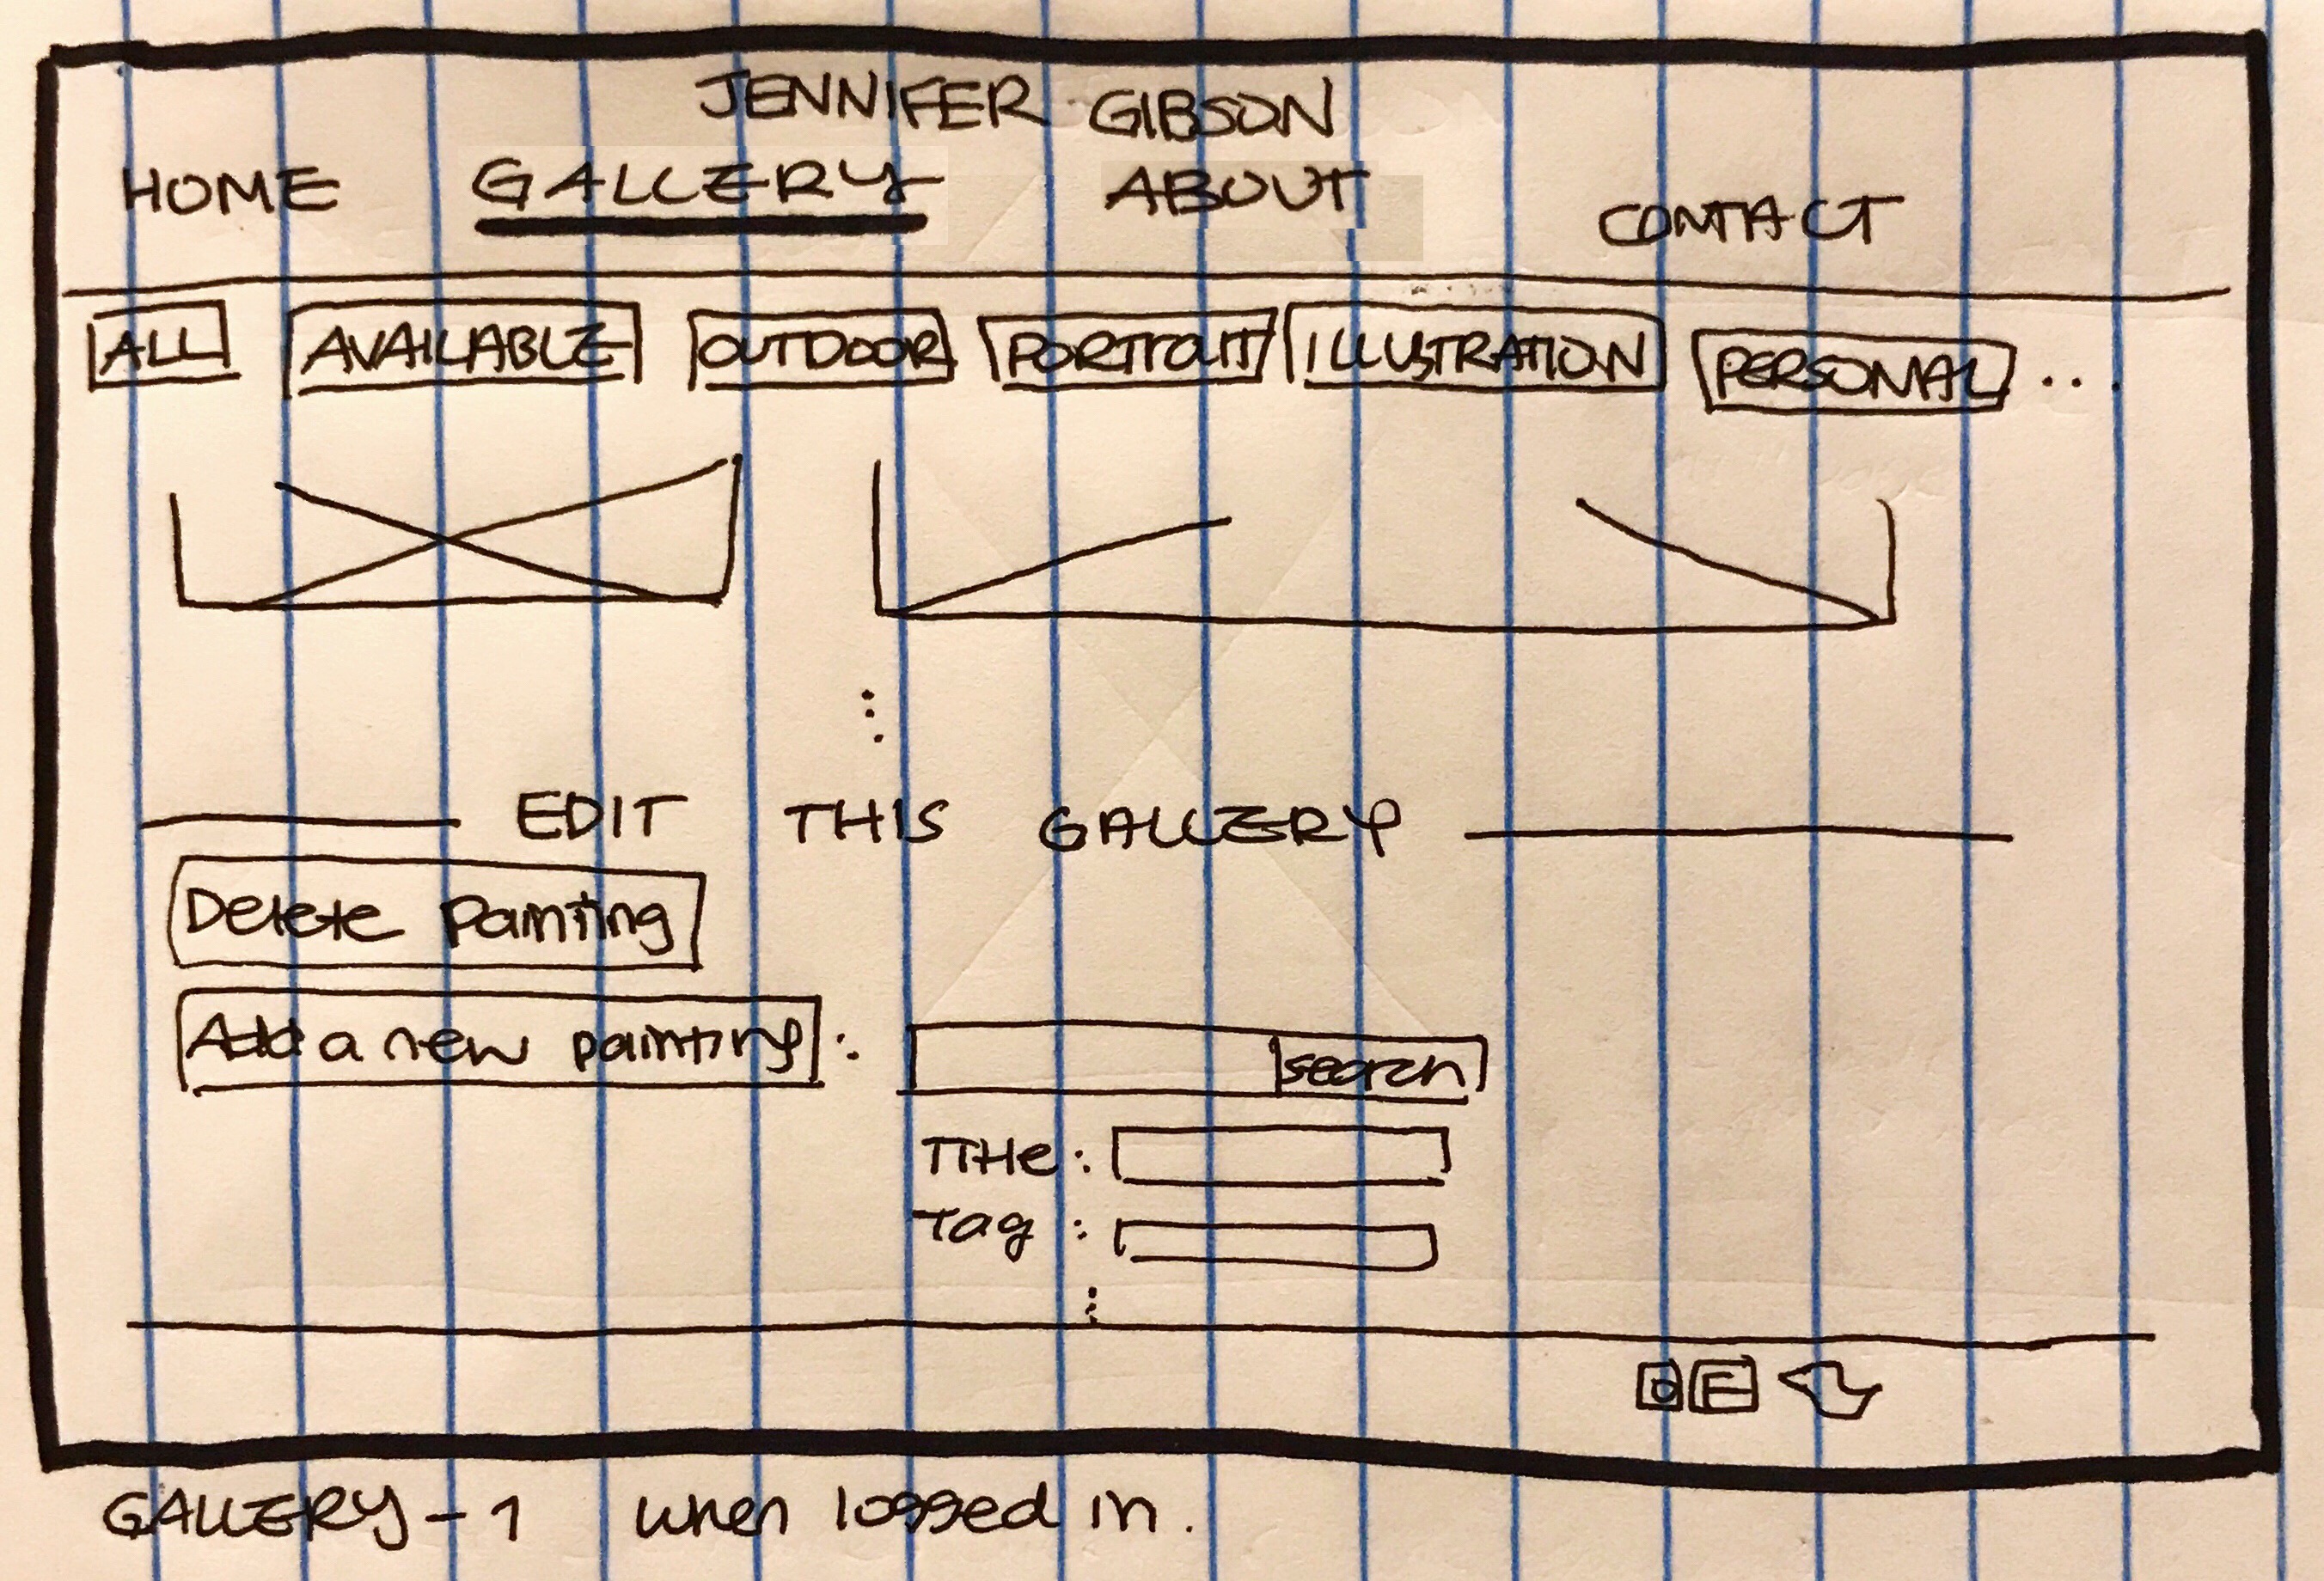 JENNIFER GIBSON
HOME GALLERY ABOUT CONTACT
ALL AVAILABLE OUTDOOR PORTRAIT ILLUSTRATION PERSONAL ...
EDIT THIS GALLERY
Delete Painting
Add a new painting : search
Title :
Tag :
GALLERY - 1 when logged in.